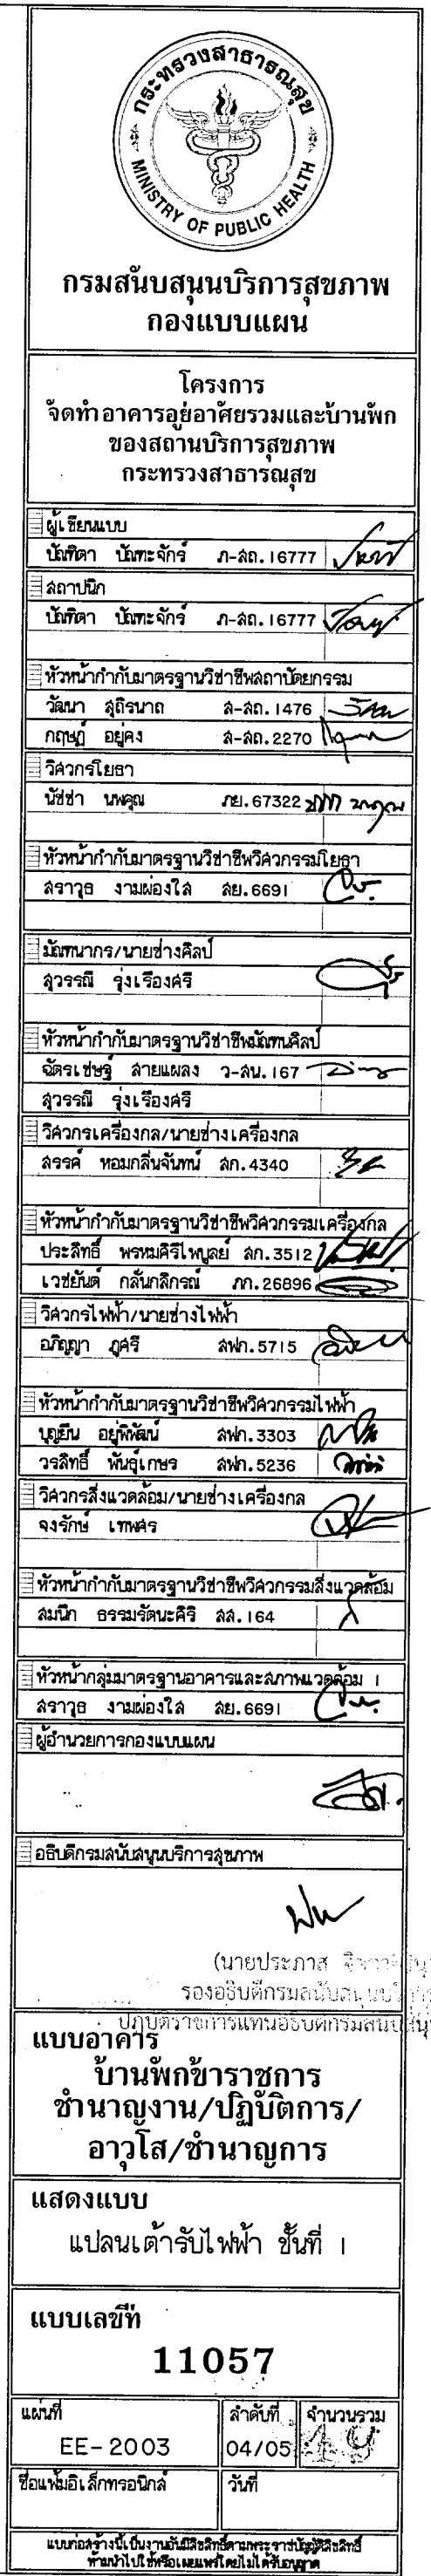 กระทรวงสาธารณสุข
MINISTRY OF PUBLIC HEALTH
กรมสนับสนุนบริการสุขภาพ
กองแบบแผน
โครงการ
จัดทำอาคารอยู่อาศัยรวมและบ้านพัก
ของสถานบริการสุขภาพ
กระทรวงสาธารณสุข
ผู้เขียนแบบ
บัณฑิตา บัณฑะจักร์ ภ-สถ.16777
สถาปนิก
บัณฑิตา บัณฑะจักร์ ภ-สถ.16777
หัวหน้ากำกับมาตรฐานวิชาชีพสถาปัตยกรรม
วัฒนา สุถิรนาถ ส-สถ.1476
กฤษฎ์ อยู่คง ส-สถ.2270
วิศวกรโยธา
นัชช่า นพคุณ ภย.67322
หัวหน้ากำกับมาตรฐานวิชาชีพวิศวกรรมโยธา
สราวุธ งามผ่องใส สย.6691
มัณฑนากร/นายช่างศิลป์
สุวรรณี รุ่งเรืองศรี
หัวหน้ากำกับมาตรฐานวิชาชีพมัณฑนศิลป์
ฉัตรเชษฐ์ สายแผลง ว-สน.167
สุวรรณี รุ่งเรืองศรี
วิศวกรเครื่องกล/นายช่างเครื่องกล
สรรค์ หอมกลิ่นจันทน์ สก.4340
หัวหน้ากำกับมาตรฐานวิชาชีพวิศวกรรมเครื่องกล
ประสิทธิ์ พรหมคิรีไพบูลย์ สก.3512
เวชยันต์ กลั่นกสิกรณ์ ภก.26896
วิศวกรไฟฟ้า/นายช่างไฟฟ้า
อภิญญา ภูศรี สฟก.5715
หัวหน้ากำกับมาตรฐานวิชาชีพวิศวกรรมไฟฟ้า
บุญยืน อยู่พิพัฒน์ สฟก.3303
วรสิทธิ์ พันธุ์เกษร สฟก.5236
วิศวกรสิ่งแวดล้อม/นายช่างเครื่องกล
จงรักษ์ เทพศร
หัวหน้ากำกับมาตรฐานวิชาชีพวิศวกรรมสิ่งแวดล้อม
สมนึก ธรรมรัตนะคิริ สส.164
หัวหน้ากลุ่มมาตรฐานอาคารและสภาพแวดล้อม 1
สราวุธ งามผ่องใส สย.6691
ผู้อำนวยการกองแบบแผน
อธิบดีกรมสนับสนุนบริการสุขภาพ
(นายประภาส
รองอธิบดีกรมสนับสนุน
ปฏิบัติราชการแทนอธิบดีกรมสนับสนุน
แบบอาคาร
บ้านพักข้าราชการ
ชำนาญงาน/ปฏิบัติการ/
อาวุโส/ชำนาญการ
แสดงแบบ
แปลนเต้ารับไฟฟ้า ชั้นที่ 1
แบบเลขที่
11057
แผ่นที่ ลำดับที่ จำนวนรวม
EE-2003 04/05 49
ชื่อแฟ้มอิเล็กทรอนิกส์ วันที่
แบบก่อสร้างนี้เป็นงานอันมีลิขสิทธิ์ตามพระราชบัญญัติลิขสิทธิ์
ห้ามนำไปใช้หรือเผยแพร่โดยไม่ได้รับอนุญาต